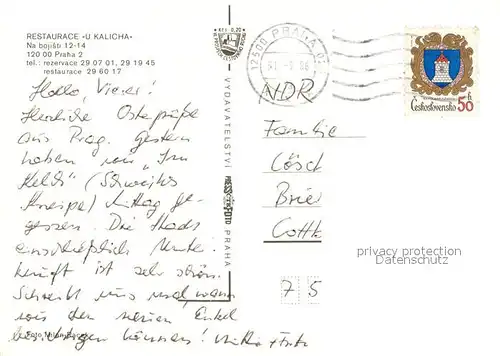 RESTAURACE «U KALICHA»
Na bojišti 12-14
120 00 Praha 2
tel.: rezervace 29 07 01, 29 19 45
restaurace 29 60 17
Hallo, Vierer!
Herzliche Ostergrüße
aus Prag. Gestern
haben wir "Im
Kelch" (Schwejks
Kneipe) Mittag ge-
gessen. Die Stadt
einschließlich Unter-
kunft ist sehr schön.
Schreibt uns mal, wann
wir den neuen Enkel
besichtigen können!
Foto Milan
KčS 0,20
VYDAVATELSTVÍ PRESSFOTO PRAHA
12500 PRAHA 0
86
Československo 50h
NDR
Familie
Lösch
Brie
Cottb
privacy protection
Datenschutz
7 5